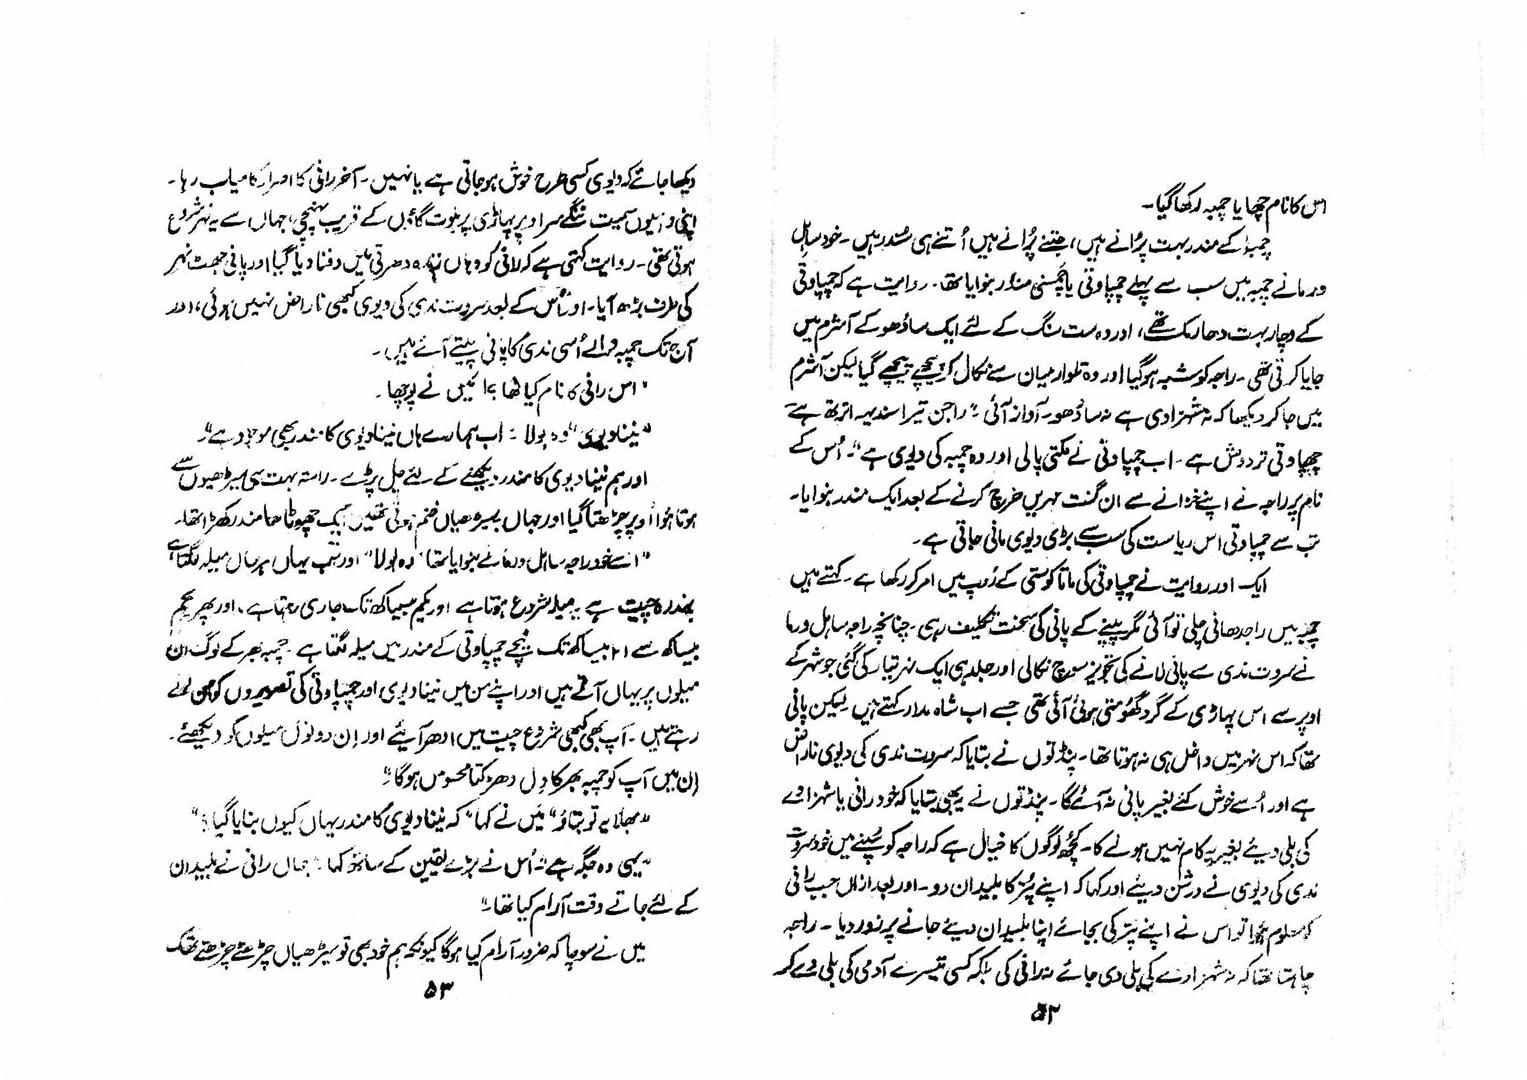 اس کا نام چمپا یا چمبہ رکھا گیا۔
چمبہ کے مندر بہت پرانے ہیں، جتنے پرانے ہیں اُتنے ہی سُندر ہیں۔ خود ساہل
ورمانے چمبہ میں سب سے پہلے چمپاوتی یا چمسنی مندر بنوایا تھا۔ روایت ہے کہ چمپاوتی
کے وچار بہت دھارمک تھے، اور وہ ست سنگ کے لئے ایک سادُھو کے آشرم میں
جایا کرتی تھی۔ راجہ کو شبہ ہوگیا اور وہ تلوار میان سے نکال کر پیچھے پیچھے گیا لیکن آشرم
میں جا کر دیکھا کہ نہ شہزادی ہے نہ سادُھو۔ آواز آئی "راجن تیرا سندیہہ انرتھ ہے
چمپاوتی نردوش ہے۔ اب چمپاوتی نے مکتی پالی اور وہ چمبہ کی دیوی ہے"۔ اُس کے
نام پر راجہ نے اپنے خزانے سے ان گنت مہریں خرچ کرنے کے بعد ایک مندر بنوایا۔
تب سے چمپاوتی اس ریاست کی سب سے بڑی دیوی مانی جاتی ہے۔
ایک اور روایت نے چمپاوتی کی ماتا کو ستی کے رُوپ میں امر کر رکھا ہے۔ کہتے ہیں
چمبہ میں راجدھانی چلی تو آئی مگر پینے کے پانی کی سخت تکلیف رہی۔ چنانچہ راجہ ساہل ورما
نے سروت ندی سے پانی لانے کی تجویز سوچ نکالی اور جلد ہی ایک نہر تیار کی گئی جو شہر کے
اوپر سے اس پہاڑی کے گرد گھومتی ہوئی آئی تھی جسے اب شاہ مدار کہتے ہیں لیکن پانی
تھا کہ اس نہر میں داخل ہی نہ ہوتا تھا۔ پنڈتوں نے بتایا کہ سروت ندی کی دیوی ناراض
ہے اور اُسے خوش کئے بغیر پانی نہ آئے گا۔ پنڈتوں نے یہ بھی بتایا کہ خود رانی یا شہزادے
کی بلی دیئے بغیر یہ کام نہیں ہونے کا۔ کچھ لوگوں کا خیال ہے کہ راجہ کو سپنے میں خود سروت
ندی کی دیوی نے درشن دیئے اور کہا کہ اپنے پُتر کا بلیدان دو۔ اور بعد ازاں جب رانی
کو معلوم ہوا تو اس نے اپنے پتر کی بجائے اپنا بلیدان دیئے جانے پر زور دیا۔ راجہ
چاہتا تھا کہ نہ شہزادے کی بلی دی جائے نہ رانی کی بلکہ کسی تیسرے آدمی کی بلی دے کر
۵۲
دیکھا جائے کہ دیوی کسی طرح خوش ہو جاتی ہے یا نہیں۔ آخر رانی کا اصرار کامیاب رہا۔
اپنی داسیوں سمیت ننگے سر اوپر پہاڑی پر بلوت گاؤں کے قریب پہنچی، جہاں سے یہ نہر شروع
ہوتی تھی۔ روایت کہتی ہے کہ رانی کو وہاں زندہ دھرتی میں دفنا دیا گیا اور پانی جھٹ نہر
کی طرف بڑھ آیا۔ اور اُس کے بعد سروت ندی کی دیوی کبھی ناراض نہیں ہوئی، اور
آج تک چمبہ والے اُسی ندی کا پانی پیتے آئے ہیں۔
"اس رانی کا نام کیا تھا؟" میں نے پوچھا۔
"نینا دیوی" وہ بولا "اب ہمارے ہاں نینا دیوی کا مندر بھی موجود ہے"۔
اور ہم نینا دیوی کا مندر دیکھنے کے لئے چل پڑے۔ راستہ بہت سی سیڑھیوں سے
ہوتا ہوا اوپر چڑھتا گیا اور جہاں سیڑھیاں ختم ہوئی تھیں ایک چھوٹا سا مندر کھڑا تھا۔
"اسے خود راجہ ساہل ورما نے بنوایا تھا" وہ بولا "اور تب یہاں ہر سال میلہ لگتا ہے
پندرہ چیت سے یہ میلہ شروع ہوتا ہے اور یکم بیساکھ تک جاری رہتا ہے، اور پھر یکم
بیساکھ سے ۲۱ بیساکھ تک نیچے چمپاوتی کے مندر میں میلہ لگتا ہے۔ چمبہ بھر کے لوگ ان
میلوں پر یہاں آتے ہیں اور اپنے من میں نینا دیوی اور چمپاوتی کی تصویروں کو
رہتے ہیں۔ آپ بھی کبھی شروع چیت میں ادھر آیئے اور اِن دونوں میلوں کو دیکھئے۔
اِن میں آپ کو چمبہ بھر کا دِل دھڑکتا محسوس ہوگا"۔
"بھلا یہ تو بتاؤ" میں نے کہا "کہ نینا دیوی کا مندر یہاں کیوں بنایا گیا؟"
"یہی وہ جگہ ہے"۔ اُس نے بڑے یقین کے ساتھ کہا "جہاں رانی نے بلیدان
کے لئے جاتے وقت آرام کیا تھا۔"
میں نے سوچا کہ ضرور آرام کیا ہوگا کیونکہ ہم خود بھی تو سیڑھیاں چڑھتے چڑھتے تھک
۵۳